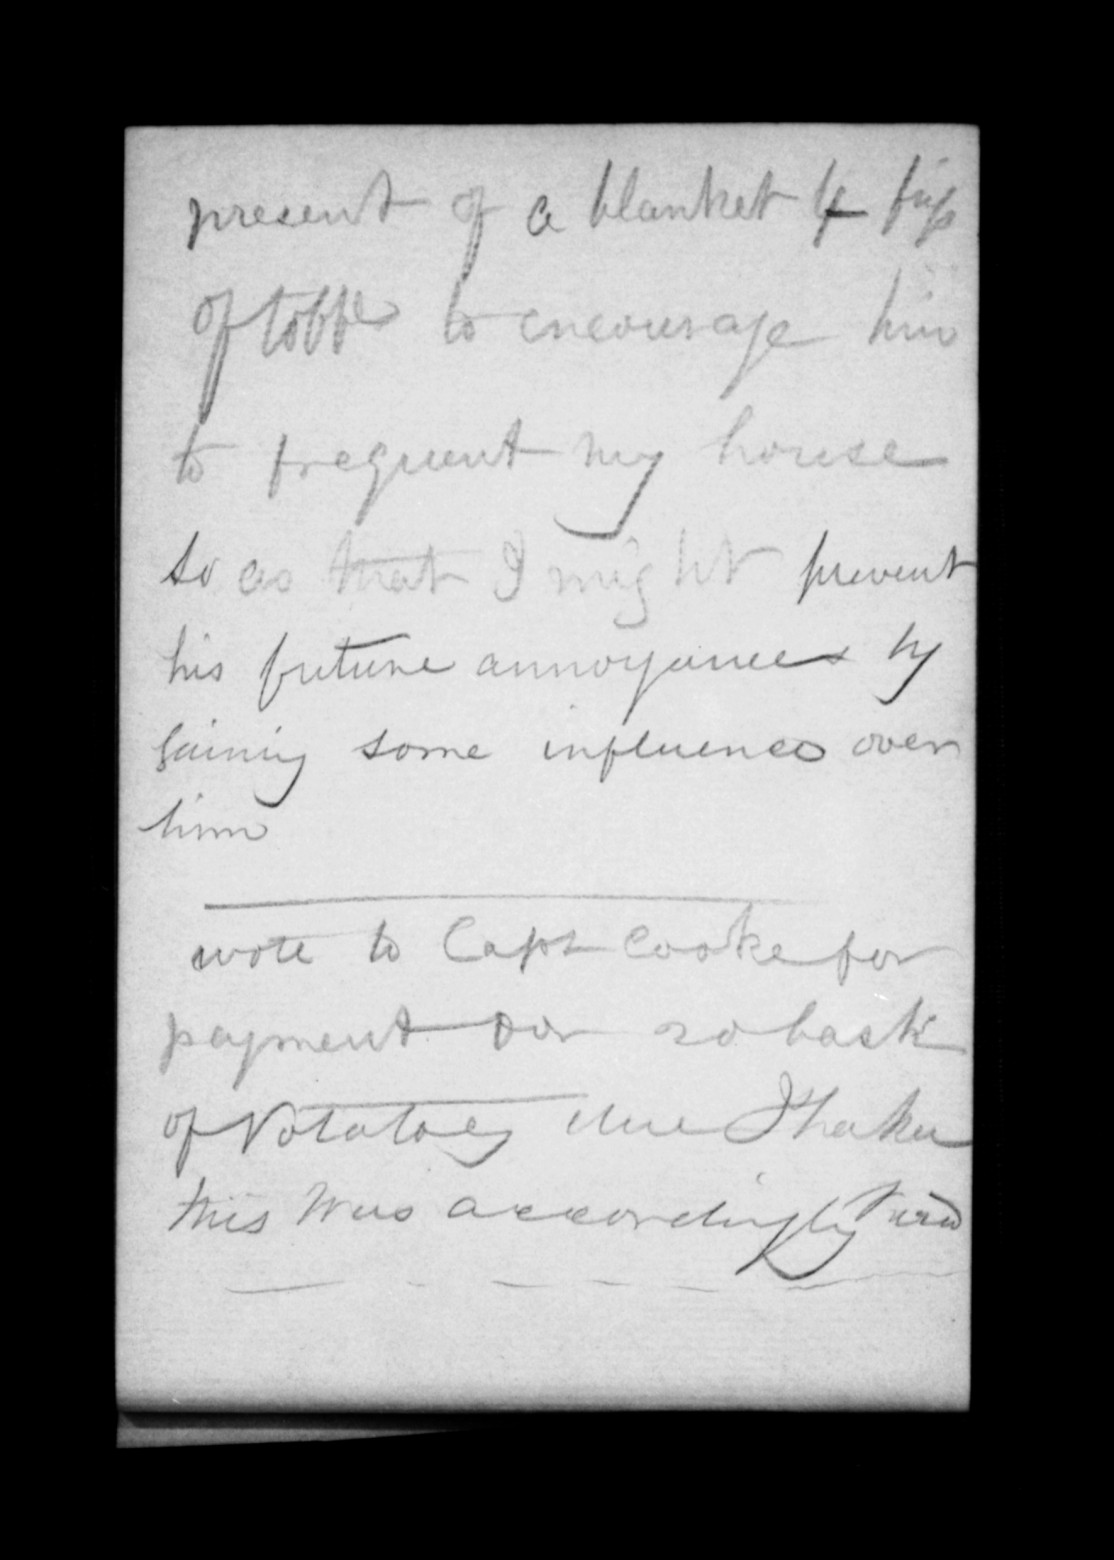 present of a blanket 4 figs
of tobbo to encourage him
to frequent my house
so as that I might prevent
his future annoyances by
gaining some influence over
him
wote to Capt Cooke for
payment for 20 bask
of Potatoes due Ihaka
this was accordingly